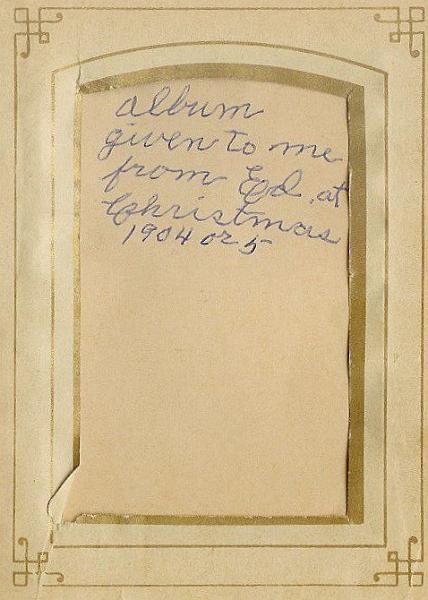 album
given to me
from Ed, at
Christmas
1904 or 5